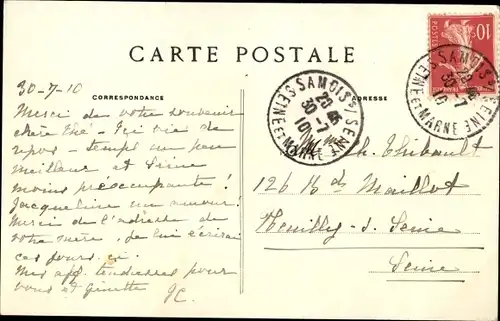 CARTE POSTALE
CORRESPONDANCE
ADRESSE
30-7-10
Merci de votre souvenir
chère - Ici vie de
repos - temps un peu
meilleur et Seine
moins préoccupante!
Jacqueline un amour!
Merci de l'adresse de
votre mère. Je lui écrirai
ces jours ci.
Mes aff. tendresses pour
vous et Ginette JC.
Mme Ch. Thibault
126 Bd Maillot
Neuilly-s. Seine
Seine
SAMOIS S/ SEINE
SEINE ET MARNE
30 -7
10
SAMOIS S/ SEINE
SEINE ET MARNE
30 -7
10
10
POSTES